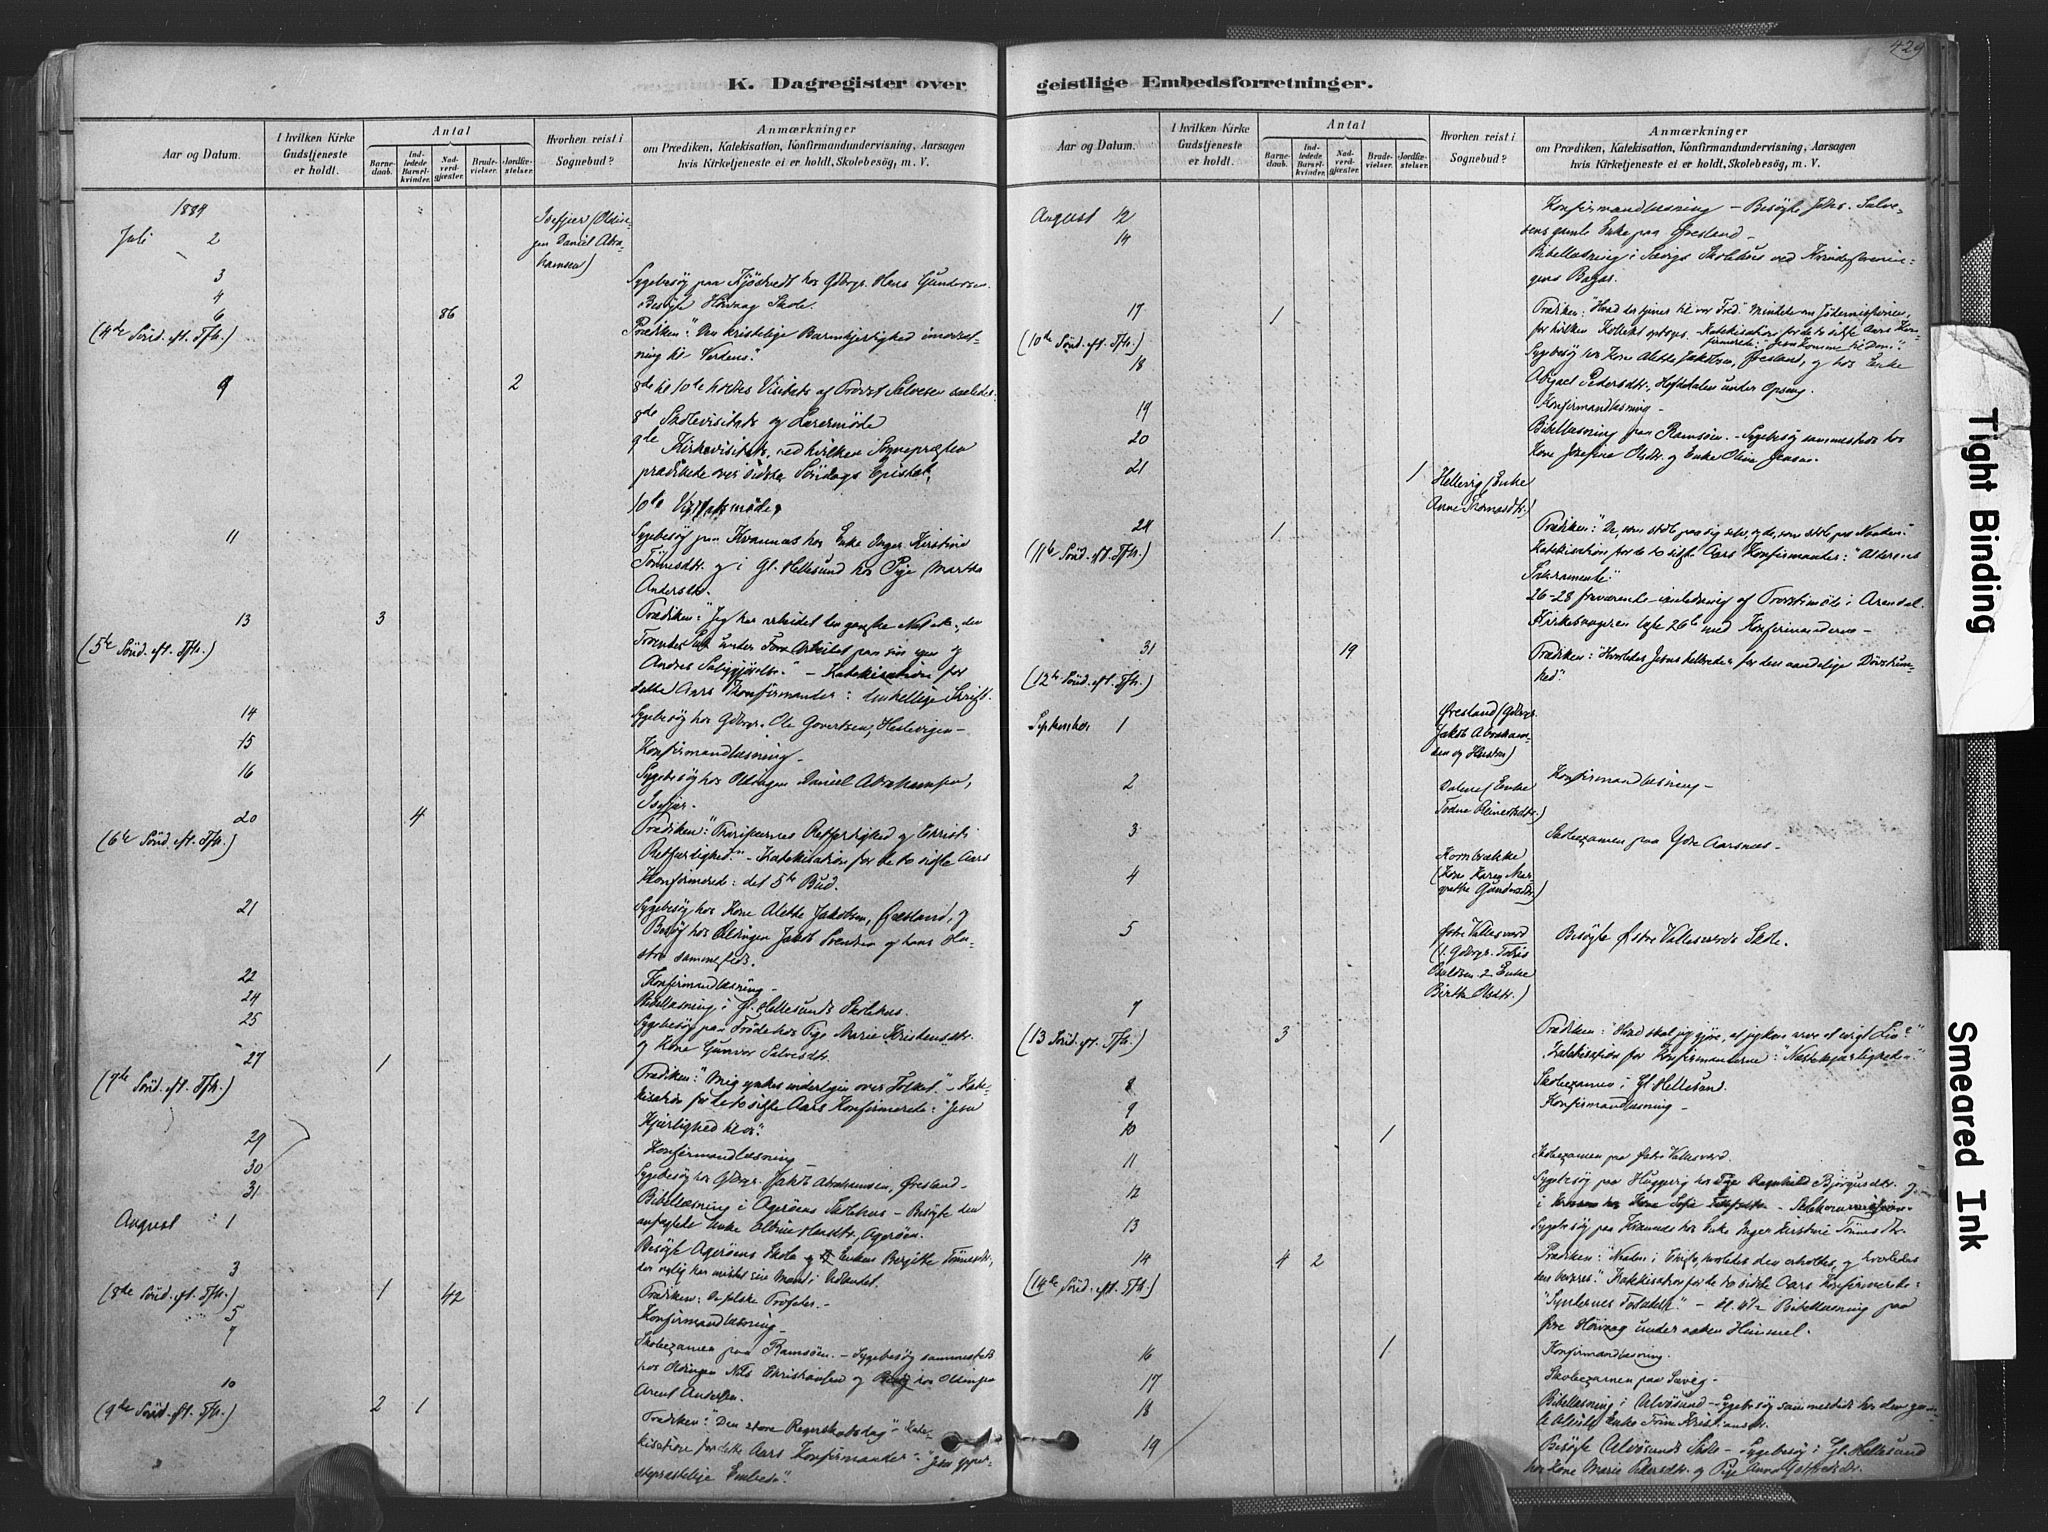 K. Dagregister over geistlige Embedsforretninger.
429
Aar og Datum.
I hvilken Kirke Gudstjeneste er holdt.
Antal
Barnedaab.
Indledede Barselkvinder.
Nadverdgjæster.
Brudevielser.
Jordfæstelser.
Hvorhen reist i Sognebud?
Anmærkninger
om Prædiken, Katekisation, Konfirmandundervisning, Aarsagen
hvis Kirketjeneste ei er holdt, Skolebesøg, m. V.
1884
Juli 2
Isefjær (Oldin-
gen Daniel Abra-
hamsen)
3
Sygebesög paa Kjöstvedt hos Gdbrgr. Hans Gundersen
4
Besögte Hövaag Skole.
6 86
(4de Sönd. eft. Tfh.)
Prædiken: "Den kristelige Barmhjertighed i modsæt-
ning til Verdens."
9 2
8de til 10de holdtes Visitats af Provst Salvesen saaledes:
8de Skolevisitats og Lærermöde
9de Kirkevisitats, ved hvilken Sognepræsten
prædikede over sidste Söndags Epistel,
10de Visitatsmöde.
11
Sygebesög paa Kvannes hos Enke Inger Kirstine
Tönnesdtr. og i Gl. Hellesund hos Pige Marthe
Andersdtr.
13 3
(5te Sönd. eft. Tfh.)
Prædiken: "Jeg har arbeidet den ganske Nat etc., den
Troendes Suk under Arbeidet paa sin egen og
Andres Saliggjørelse." - Katekisation for
dette Aars Konfirmander: den hellige Skrift.
14
Sygebesög hos Gdbrgr. Ole Govertsen, Heslevigen -
15
Konfirmandlæsning -
16
Sygebesög hos Oldingen Daniel Abrahamsen,
Isefjær.
20 4
(6te Sönd. eft. Tfh.)
Prædiken: "Farisæernes Retfærdighed og Christi
Retfærdighed." - Katekisation for de to sidste Aars
Konfirmerede: det 5te Bud.
21
Sygebesög hos Kone Alette Jakobsen, Øresland, og
Besög hos Oldingen Jakob Svendsen og hans Hu-
stru sammesteds.
22
Konfirmandlæsning -
24
Bibellæsning i Gl. Hellesunds Skolehus.
25
Sygebesög paa Tröde hos Pige Marie Kristensdtr.
og Kone Gunvor Salvesdtr.
27 1
(7de Sönd. eft. Tfh.)
Prædiken: "Mig ynkes inderligen over Folket." - Kate-
kisation for de to sidste Aars Konfirmerede: "Jesu
Kjærlighed til os".
29
Konfirmandlæsning
30
Sygebesög hos Gdbrgr. Jakob Abrahamsen, Øresland -
31
Bibellæsning i Ageröens Skolehus - Besögte den
anfægtede Enke Oline Hansdtr., Ageröen.
August 1
Besögte Ageröens Skole og Enken Bergitte Tönnesdtr.,
der nylig har mistet sin Mand i Udlandet.
3 1 42
(8de Sönd. eft. Tfh.)
Prædiken: De falske Profeter. -
5
Konfirmandlæsning -
7
Skoleexamen paa Ramsöen. - Sygebesög sammesteds
hos Oldingen Nils Christiansen og hos Oldingen
Arent Andersen.
10 2 1
(9de Sönd. eft. Tfh.)
Prædiken: "Den store Regnskabsdag" - Kate-
kisation for dette Aars Konfirmander: "Jesu ypper-
stepræstelige Embede".
Aar og Datum.
I hvilken Kirke Gudstjeneste er holdt.
Antal
Barnedaab.
Indledede Barselkvinder.
Nadverdgjæster.
Brudevielser.
Jordfæstelser.
Hvorhen reist i Sognebud?
Anmærkninger
om Prædiken, Katekisation, Konfirmandundervisning, Aarsagen
hvis Kirketjeneste ei er holdt, Skolebesøg, m. V.
August 12
Konfirmandlæsning - Besögte Salve-
sens gamle Enke paa Øresland -
14
Bibellæsning i Sævigs Skolehus ved Kvindeforenin-
gens Bazar.
17 1
(10de Sönd. eft. Tfh.)
Prædiken: "Hvad der tjener til vor Fred". Mindede om Jödemissionen,
for hvilken Kollekt optoges. - Katekisation for de to sidste Aars Kon-
firmerede: "Jesu Komme til Dom".
18
Sygebesög hos Kone Alette Jakobsen, Øresland, og hos Enke
Abigael Pedersdtr., Heftedalen under Opsang.
19
Konfirmandlæsning -
20
Bibellæsning paa Ramsöen. - Sygebesög sammesteds hos
Kone Josefine Olsdtr. og Enke Oline Jensen.
21 1
Hellevig (Enke
Anne Thomasdtr.)
24 1
(11te Sönd. eft. Tfh.)
Prædiken: "De, som stole paa sig selv, og de, som stole paa Naaden."
Katekisation for de to sidste Aars Konfirmander: "Alterens
Sakramente."
26-28 fraværende i Anledning af Provstimöde i Arendal.
Kirkesangeren læste 26de med Konfirmanderne -
31 19
(12te Sönd. eft. Tfh.)
Prædiken: "Hvorledes Jesus helbreder for den aandelige Dövstum-
hed".
September 1
Øresland (Gdbrgr.
Jakob Abraham-
sen og Hustru)
2
Dalene (Enke
Todne Reinertsdtr.)
Konfirmandlæsning -
3
Skoleexamen paa Ydre Aarsnes -
4
Kornbrække
(Kone Karen Mar-
grethe Gundersdtr.)
5
Østre Vallesværd
(1. Gdbrgr. Tobias
2 Enke
Birthe Olsdtr.)
Besögte Østre Vallesværds Skole.
7 3
(13 Sönd. eft. Tfh.)
Prædiken: "Hvad skal jeg gjöre, at jeg kan arve et evigt Liv?"
Katekisation for Konfirmanderne: "Næstekjærligheden."
8
Skoleexamen i Gl. Hellesund.
9
Konfirmandlæsning -
10 1
11
Skoleexamen paa Østre Vallesværd.
12
Sygebesög paa Huggerg hos Pige Ragnhild Bjorgusdtr. og
i hos Kone Sofie
13
Sygebesög paa Kvannes hos Enke Inger Kristine Tönnesdtr.
14 4 2
(14de Sönd. eft. Tfh.)
Prædiken: "Naaden i Christo, hvorledes den erholdes, og hvorledes
den bevares." Katekisation for de to sidste Aars Konfirmerede:
"Syndernes Forladelse." - Kl. 4½ Bibellæsning paa
Hövaag under aaben Himmel.
16 1
Konfirmandlæsning.
17
Skoleexamen paa Sævig -
18
Bibellæsning i Alvösund - Sygebesög sammesteds hos den gam-
le Enke Trine Kristiansdtr.
19
Besögte Alvösunds Skole - Sygebesög i Gl. Hellesund
hos Kone Marie Pettersdtr. og Pige Anna
Tight Binding
Smeared Ink